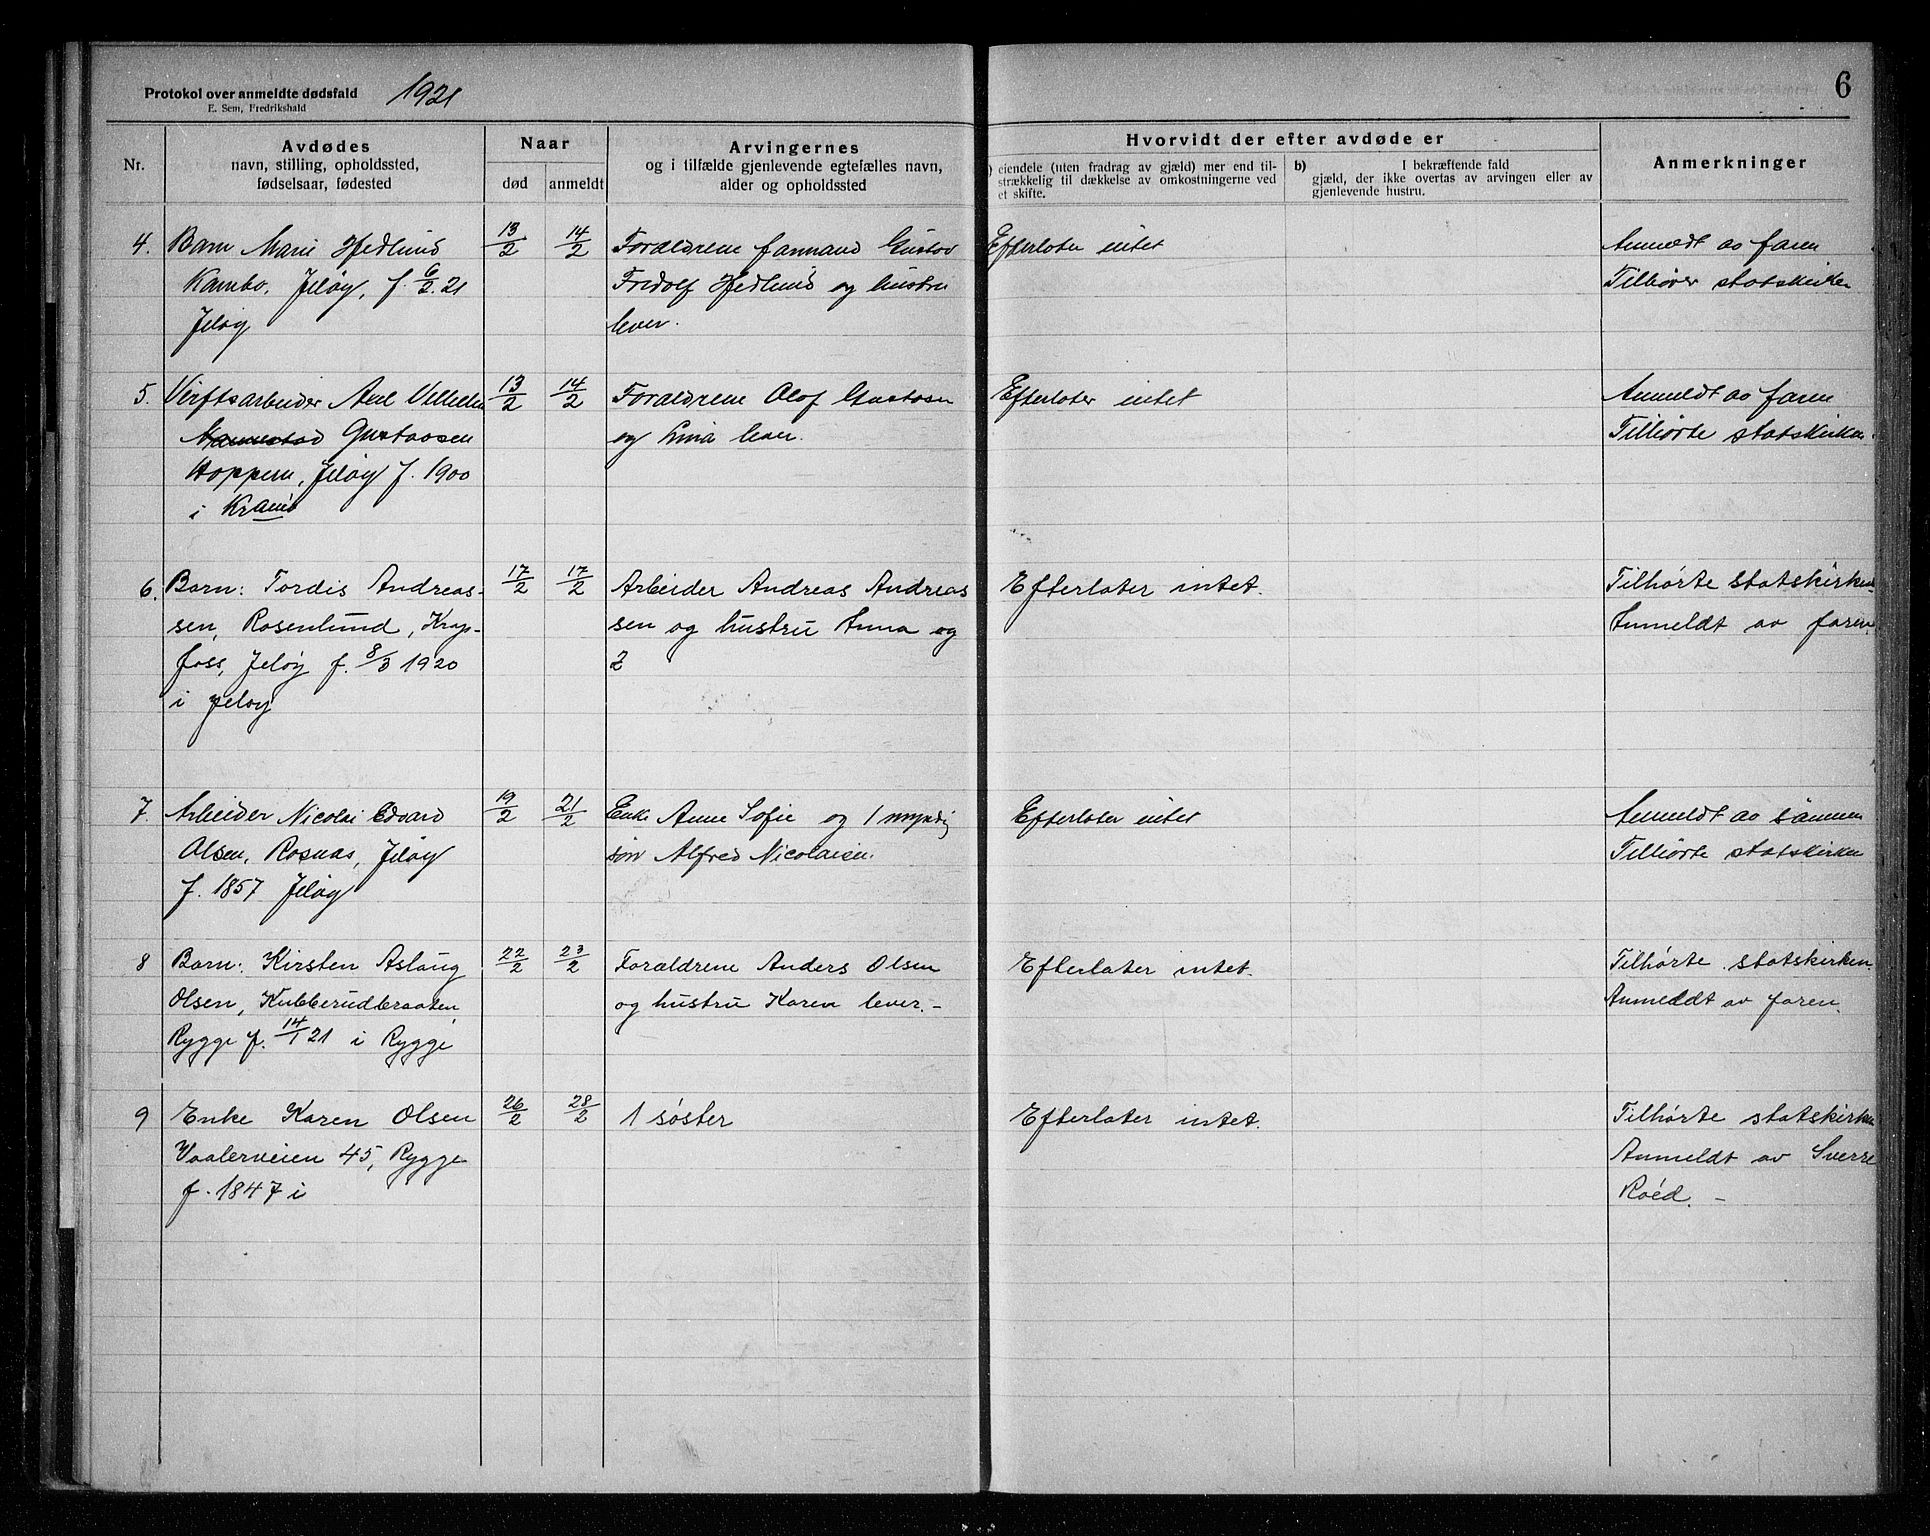 Protokol over anmeldte dødsfald
E. Sem, Fredrikshald
1921
6
Nr.
Avdødes
navn, stilling, opholdssted,
fødselsaar, fødested
Naar
død
anmeldt
Arvingernes
og i tilfælde gjenlevende egtefælles navn,
alder og opholdssted
Hvorvidt der efter avdøde er
) eiendele (uten fradrag av gjæld) mer end til-
strækkelig til dækkelse av omkostningerne ved
et skifte.
b) I bekræftende fald
gjæld, der ikke overtas av arvingen eller av
gjenlevende hustru.
Anmerkninger
4.
Barn Marie Hedlund
Kambo, Jeløy, f. 6/2. 21
Jeløy
13/2
14/2
Forældrene Gustav
Fridolf Hedlund og hustru
lever.
Efterlater intet
Anmeldt av faren
Tilhører statskirken
5.
Verftsarbeider Axel Vilhelm
Gustavsen
Hoppern, Jeløy f. 1900
i
13/2
14/2
Forældrene Olof Gustavsen
og Lina lever.
Efterlater intet
Anmeldt av faren
Tilhørte statskirken
6.
Barn: Tordis Andreas-
sen, Rosenlund, Krap-
foss, Jeløy f. 8/3 1920
i Jeløy
17/2
17/2
Arbeider Andreas Andreas
sen og hustru Anna og
2
Efterlater intet.
Tilhørte statskirken
Anmeldt av faren
7.
Arbeider Nicolai Edvard
Olsen, Rosnæs, Jeløy
f. 1857 Jeløy
19/2
21/2
Enke Anne Sofie og 1 myndig
søn Alfred Nicolaisen.
Efterlater intet
Anmeldt av sønnen
Tilhørte statskirken
8
Barn: Kirsten Aslaug
Olsen, Kubberudbraaten,
Rygge f. 14/1 21 i Rygge
22/2
23/2
Forældrene Anders Olsen
og hustru Karen lever. -
Efterlater intet.
Tilhørte statskirken.
Anmeldt av faren.
9
Enke Karen Olsen
Vaalerveien 45, Rygge
f. 1847 i
26/2
28/2
1 søster
Efterlater intet.
Tilhørte statskirken
Anmeldt av Sverre
Roéd. -